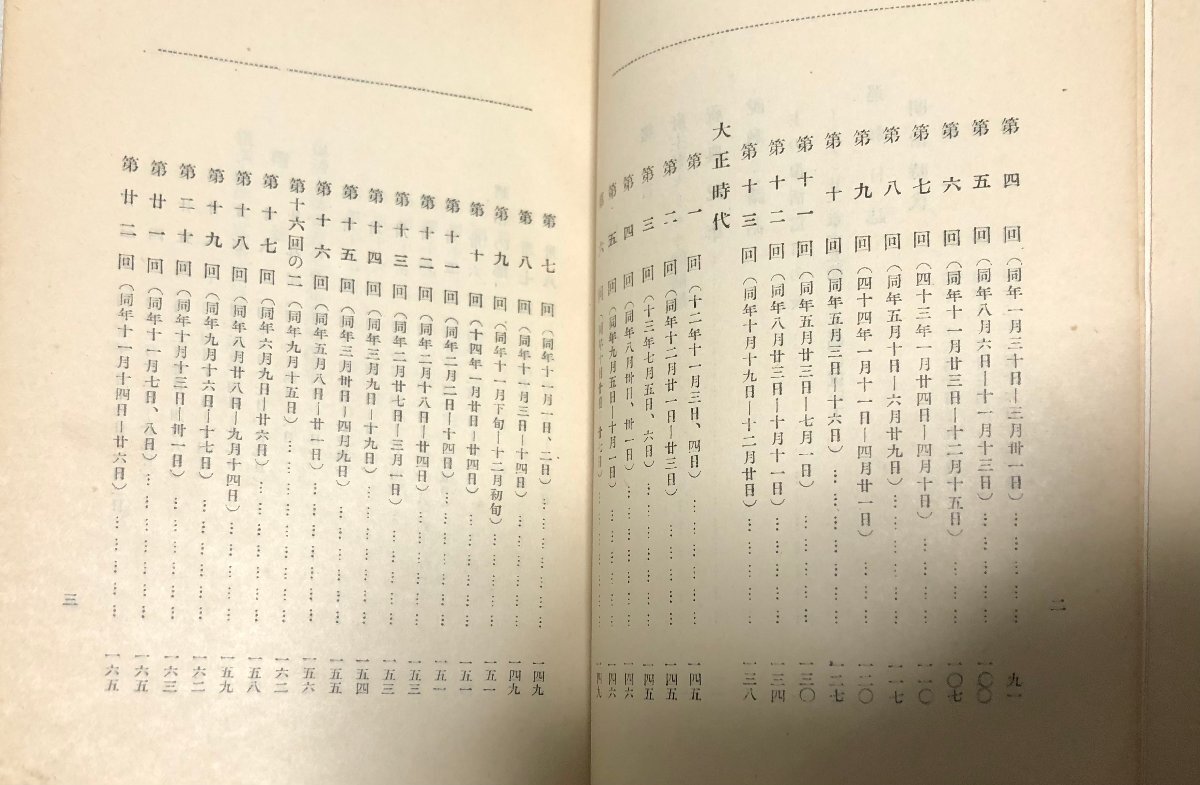 第四回（同年一月三十日―三月卅一日）………………九一
第五回（同年八月六日―十一月十三日）………………一〇〇
第六回（同年十一月廿三日―十二月十五日）………………一〇七
第七回（四十三年一月廿四日―四月十日）………………一一〇
第八回（同年五月十日―六月廿九日）………………一一七
第九回（四十四年一月十一日―四月廿一日）………………一二〇
第十回（同年五月三日―十六日）………………一二七
第十一回（同年五月廿三日―七月一日）………………一三〇
第十二回（同年八月廿三日―十月十一日）………………一三四
第十三回（同年十月十九日―十二月廿日）………………一三八
大正時代
第一回（十二年十一月三日、四日）………………一四五
第二回（同年十二月廿一日―廿三日）………………一四五
第三回（十三年七月五日、六日）………………一四五
第四回（同年八月卅日、卅一日）………………一四六
第五回（同年九月五日―十月一日）………………一四六
第六回
一四九
二
第七回（同年十一月一日、二日）………………一四九
第八回（同年十一月三日―十四日）………………一四九
第九回（同年十一月下旬―十二月初旬）………………一五一
第十回（十四年一月廿日―廿四日）………………一五一
第十一回（同年二月二日―十四日）………………一五一
第十二回（同年二月十八日―廿四日）………………一五三
第十三回（同年二月廿七日―三月一日）………………一五三
第十四回（同年三月九日―十九日）………………一五四
第十五回（同年三月卅日―四月九日）………………一五五
第十六回（同年五月八日―廿一日）………………一五六
第十六回の二（同年九月十五日）………………一六二
第十七回（同年六月九日―廿六日）………………一五八
第十八回（同年八月廿八日―九月十四日）………………一五九
第十九回（同年九月十六日―十七日）………………一六二
第二十回（同年十月十三日―卅一日）………………一六三
第廿一回（同年十一月七日、八日）………………一六五
第廿二回（同年十一月十四日―廿六日）………………一六五
三